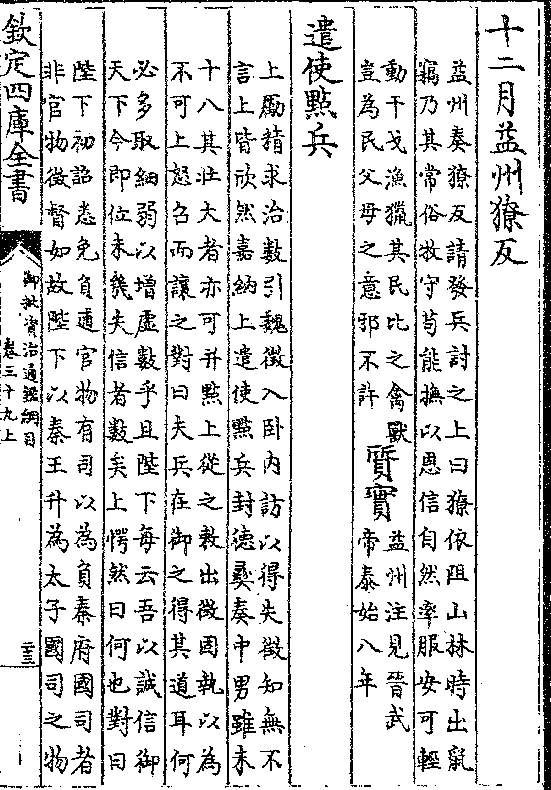 十二月益州獠反
益州奏獠反請發兵討之上曰獠依阻山林時出鼠
竊乃其常俗牧守苟能撫以恩信自然率服安可輕
動干戈漁獵其民比之禽獸
豈為民父母之意邪不許
質實
益州注見晉武
帝泰始八年
遣使㸃兵
上勵精求治數引魏徵入卧内訪以得失徵知無不
言上皆欣然嘉納上遣使㸃兵封德彞奏中男雖未
十八其壯大者亦可并㸃上從之敕出徵固執以為
不可上怒召而讓之對曰夫兵在御之得其道耳何
必多取細弱以增虚數乎且陛下每云吾以誠信御
天下今即位未幾失信者數矣上愕然曰何也對曰
陛下初詔悉免負逋官物有司以為負秦府國司者
非官物徵督如故陛下以秦王升為太子國司之物
欽定四庫全書
御批資治通鑑綱目
卷三十九上
二十三